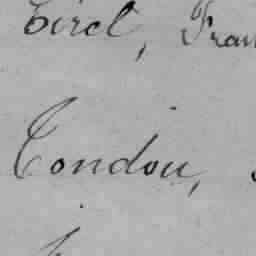 Circl, Fran
Condou,